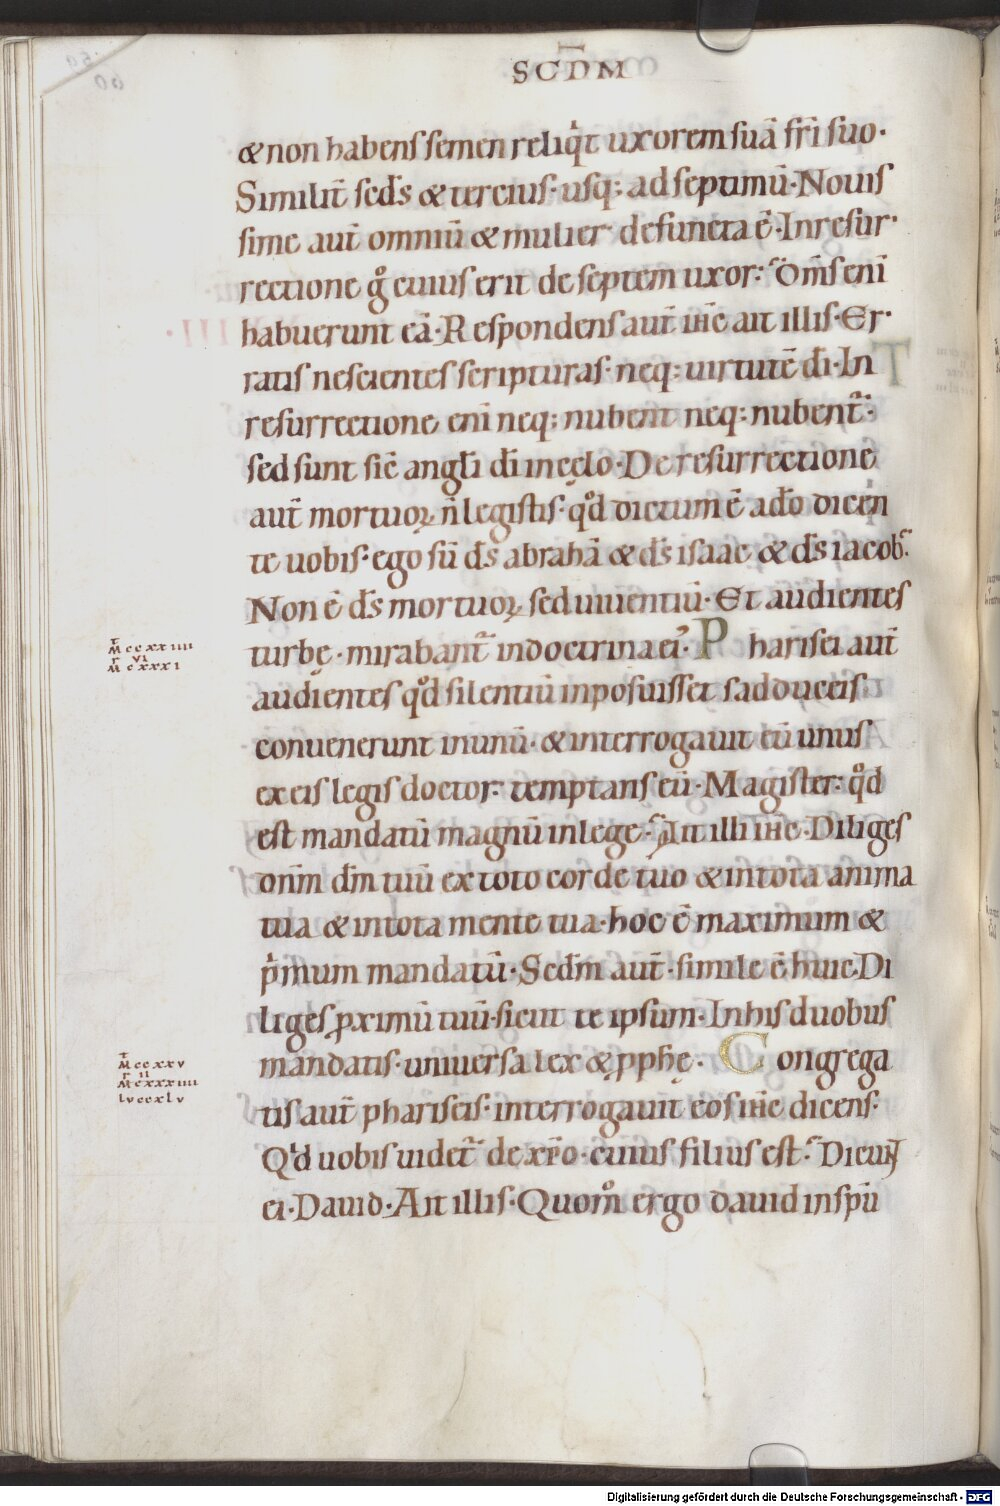 SCDM̅
& non habens semen reliq̇t uxorem suā fr̄i suo·
Similit̄ scd̄s & tercius· usq; ad septimū· Nouis
sime aut̄ omniū & mulier defuncta ē· In resur·
rectione gͦ cuius erit de septem uxor: Om̄s eni̅
habuerunt eā· Respondens aut̄ ih̄c ait illis· Er·
ratis nescientes scripturas· neq; uirtutē dī· In
resurrectione eni̅ neq; nubent neq; nubent̄·
sed sunt sic̄ angl̄i dī in cęlo· De resurrectione
aut̄ mortuoꝝ n̄ legistis· qͦd dictum ē a dō dicen
te uobis· ego sū ds̄ abrahā & ds̄ isaac & ds̄ iacob·
Non ē ds̄ mortuoꝝ sed uiuentiū· Et audientes
turbę· mirabant̄ in doctrina ei᾽· Pharisei aut̄
audientes qͦd silentiū inposuisset sadduceis
conuenerunt in unū· & interrogauit eū unus
ex eis legis doctor: temptans eū· Magister: qͦd
est mandatū magnū in lege· Ait illi ih̄c· Diliges
dn̄m dm̄ tuū ex toto corde tuo & in tota anima
tua & in tota mente tua· hoc ē maximum &
p̍mum mandatū· Scdm̄ aut̄· simile ē huic· Di
liges ꝓximū tuū· sicut te ipsum· In his duobus
mandatis· uniuersa lex & ꝓphę· Congrega
tis aut̄ phariseis· interrogauit eos ih̄c dicens·
Qͥd uobis uidet̄ de xp̄o· cuius filius est· Dicunt
ei· Dauid· Ait illis· Quom̊ ergo dauid in spū
M ccxxiiii
r vi
M cxxxi
M ccxxv
r ii
M cxxxiiii
lv ccxlv
Digitalisierung gefördert durch die Deutsche Forschungsgemeinschaft - DFG